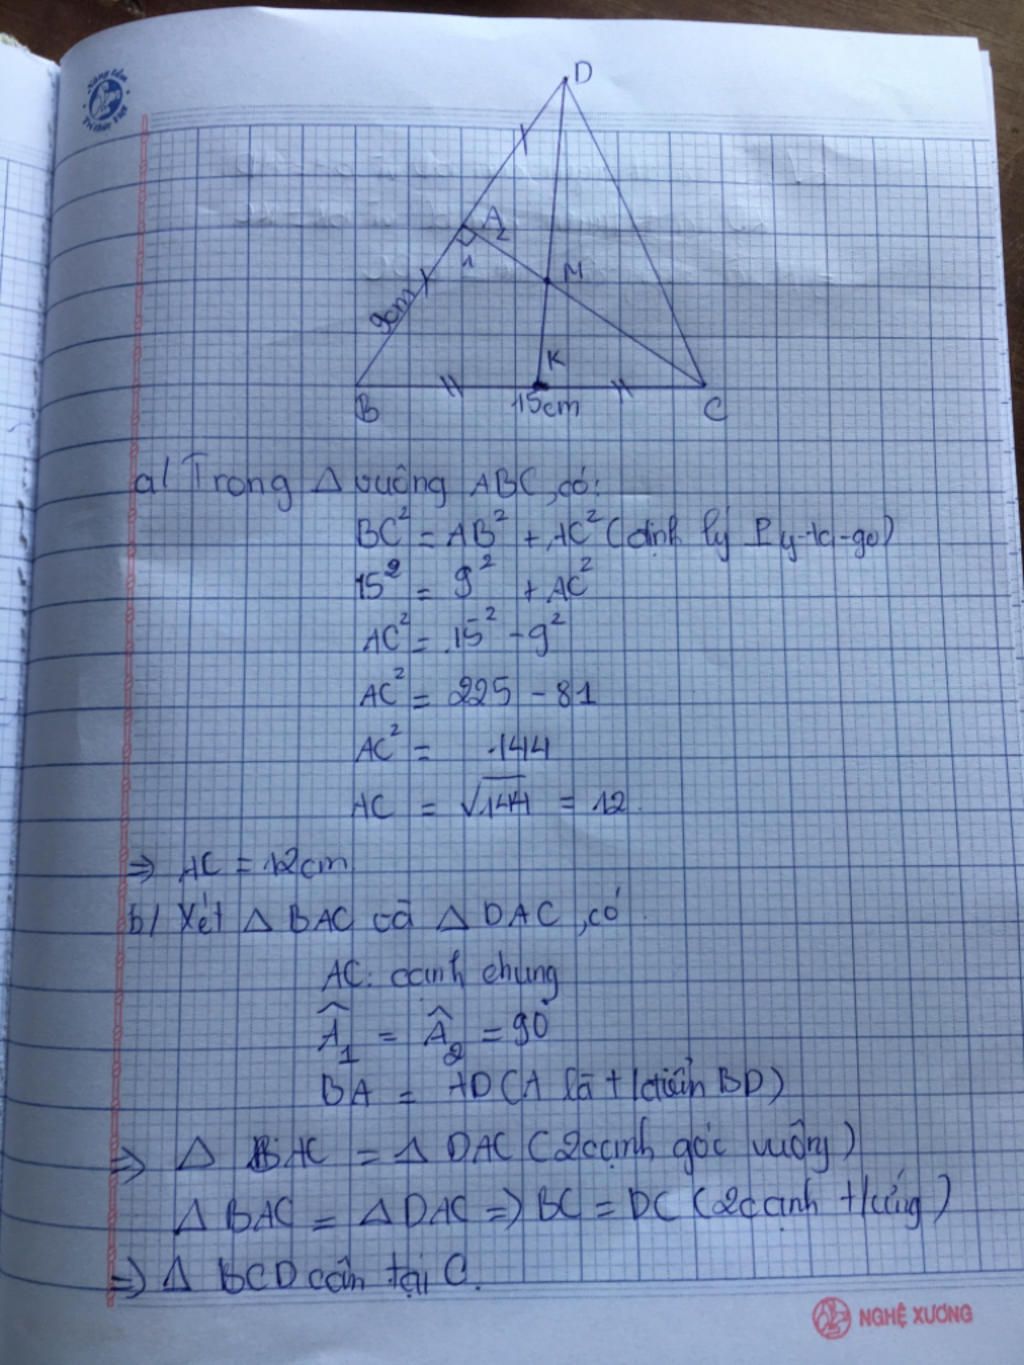 Sáng tâm
Trí thức Việt
D
A
2
1
M
9cm
K
B
15cm
C
a/ Trong Δ vuông ABC, có:
BC² = AB² + AC² (định lý Py-ta-go)
15² = 9² + AC²
AC² = 15² - 9²
AC² = 225 - 81
AC² = 144
AC = √144 = 12
=> AC = 12cm
b/ Xét Δ BAC và Δ DAC, có
AC: cạnh chung
Â₁ = Â₂ = 90°
BA = AD (A là t/điểm BD)
=> Δ BAC = Δ DAC (2 cạnh góc vuông)
Δ BAC = Δ DAC => BC = DC (2 cạnh t/ứng)
=> Δ BCD cân tại C.
NGHỆ XƯƠNG